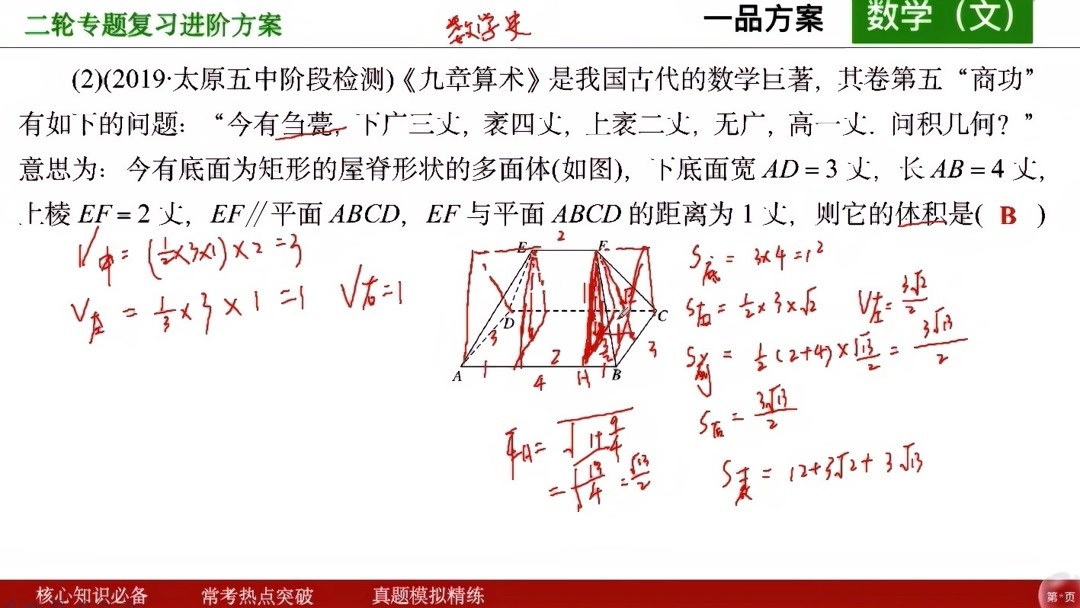 二轮专题复习进阶方案
数学史
一品方案
数学（文）
(2)(2019·太原五中阶段检测)《九章算术》是我国古代的数学巨著，其卷第五“商功”
有如下的问题：“今有刍甍，下广三丈，袤四丈，上袤二丈，无广，高一丈．问积几何？”
意思为：今有底面为矩形的屋脊形状的多面体(如图)，下底面宽 AD＝3 丈，长 AB＝4 丈，
上棱 EF＝2 丈，EF∥平面 ABCD，EF 与平面 ABCD 的距离为 1 丈，则它的体积是( B )
V中 = (½×3×1)×2 = 3
V左 = ⅓×3×1 = 1 V右 = 1
E 2 F
D C
3 3
A 1 2 H 1 B
4
S底 = 3×4 = 12
S右 = ½×3×√2 S左 = 3√2/2
S前 = ½(2+4)×√13/2 = 3√13/2
S后 = 3√13/2
S表 = 12+3√2+3√13
FH = √(1+9/4)
= √(13/4) = √13/2
核心知识必备 常考热点突破 真题模拟精练
第*页